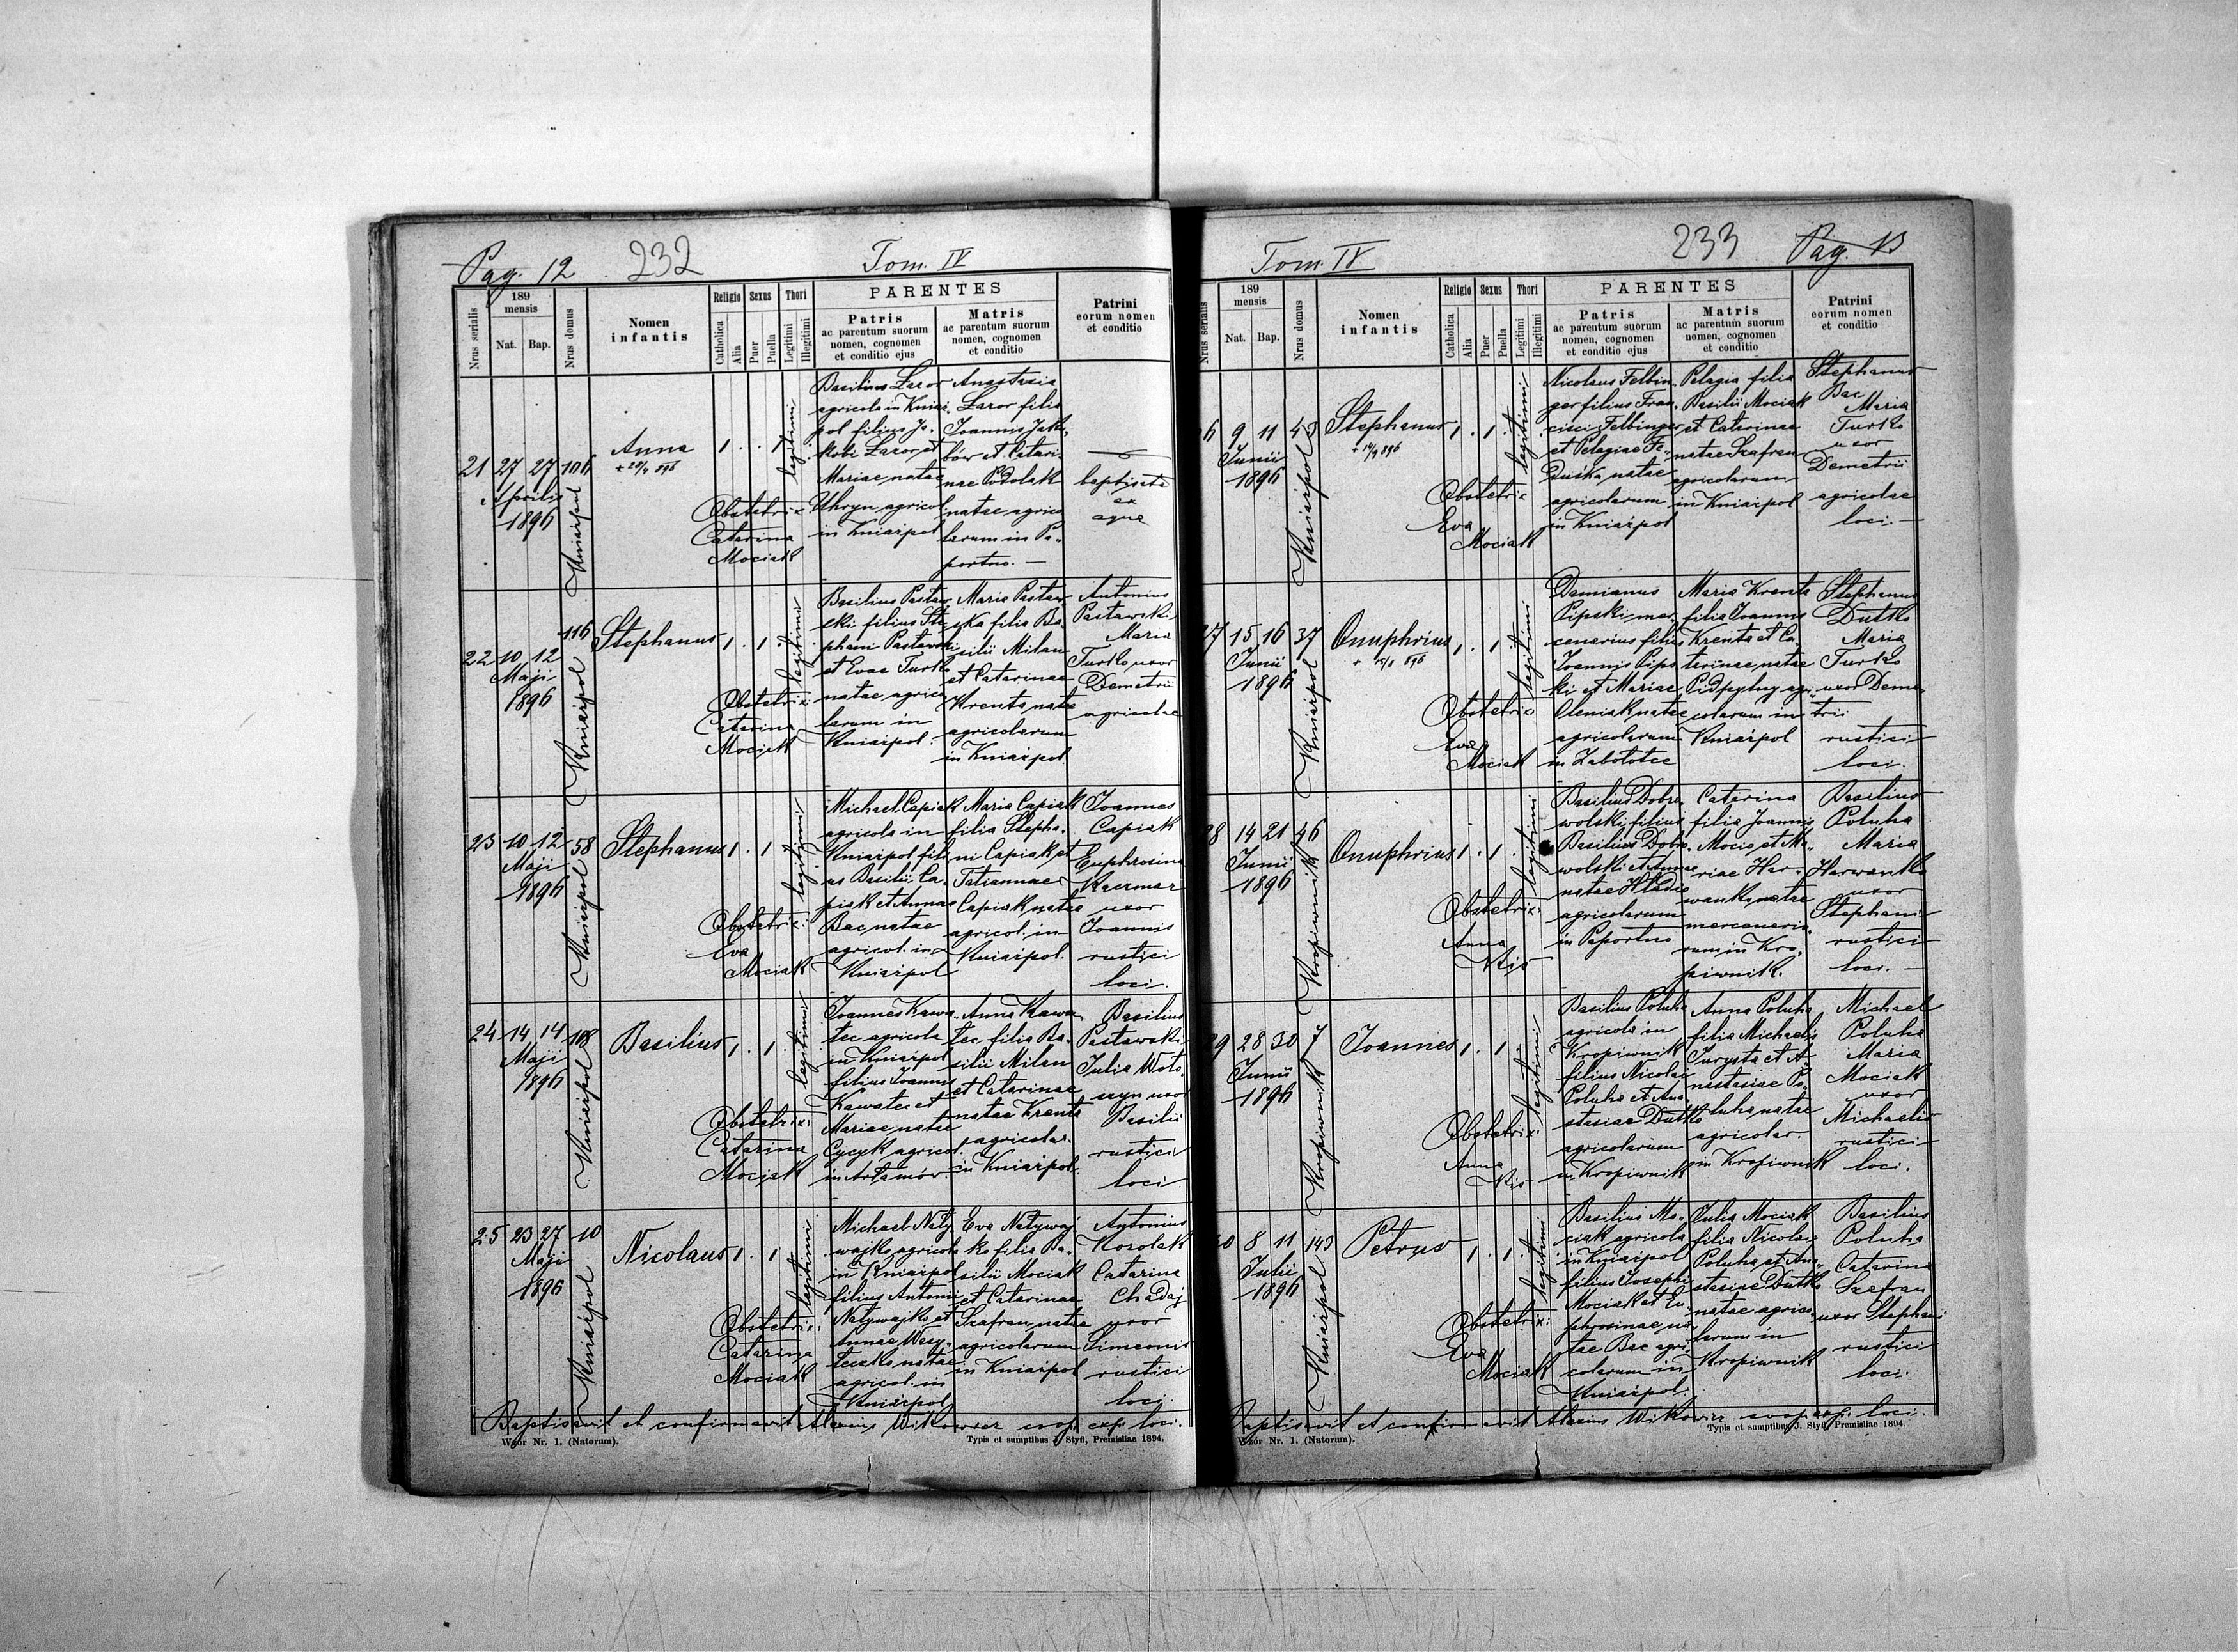 Pag. 12
232
Tom. IV
Nrus serialis
189
mensis
Nat.
Bap.
Nrus domus
Nomen
infantis
Religio
Catholica
Alia
Sexus
Puer
Puella
Thori
Legitimi
Illegitimi
PARENTES
Patris
ac parentum suorum
nomen, cognomen
et conditio ejus
Matris
ac parentum suorum
nomen, cognomen
et conditio
Patrini
eorum nomen
et conditio
21 27 27 106
Aprilis
1896
Kniaźpol
Anna
1 . . 1
legitimi
Obstetrix
Catarina
Mociak
Basilius Lazor
agricola in Kniaź-
pol filius Ja-
kobi Lazor et
Mariae natae
Uhryn agricol.
in Kniaźpol
Anastasia
Lazor filia
Joannis Jaku-
bów et Catari-
nae Podolak
natae agrico
larum in Pa-
portno. —
baptisata
ex
aqua
22 10 12 116
Maji
1896
Kniaźpol
Stephanus
1 . 1
legitimi
Obstetrix:
Catarina
Mociak
Basilius Pastaw
ski filius Ste-
phani Pastawski
et Evae Turko
natae agrico
larum in
Kniaźpol.
Maria Pastaw
ska filia Ba-
silii Milan
et Catarinae
Krenta natae
agricolarum
in Kniaźpol.
Antonius
Pastawski
Maria
Turko uxor
Demetrii
agricolae
23 10 12 58
Maji
1896
Kniaźpol
Stephanus
1 . 1
legitimi
Obstetrix:
Eva
Mociak
Michael Capiak
agricola in
Kniaźpol fili
us Basilii Ca-
piak et Annae
Bac natae
agricol. in
Kniaźpol
Maria Capiak
filia Stepha-
ni Capiak et
Tatiannae
Capiak natae
agricol. in
Kniaźpol.
Joannes
Capiak
Euphrosina
Kaczmar
uxor
Joannis
rustici
loci.
24 14 14 108
Maji
1896
Kniaźpol
Basilius
1 . 1
legitimi
Obstetrix:
Catarina
Mociak
Joannes Kawa-
tec agricola
in Kniaźpol
filius Joannis
Kawatec et
Mariae natae
Cycyk agricol.
in Artamów.
Anna Kawa-
tec filia Ba-
silii Milan
et Catarinae
natae Krenta
agricolar.
in Kniaźpol.
Basilius
Pastawski
Julia Woto-
szyn uxor
Basilii
rustici
loci
25 23 27 10
Maji
1896
Kniaźpol
Nicolaus
1 . 1
legitimi
Obstetrix:
Catarina
Mociak
Michael Naty
wajko agricola
in Kniaźpol
filius Antonii
Natywajko et
Annae
natae
agricol. in
Kniaźpol
Eva Natywaj
ko filia Ba-
silii Mociak
et Catarinae
Szafran natae
agricolarum
in Kniaźpol
Antonius
Kozolak
Catarina
Chadaj
uxor
Simeonis
rustici
loci
Baptisavit et confirmavit Alexius Witkowicz coop. exp. loci.
Wzór Nr. 1. (Natorum).
Typis et sumptibus J. Styfi, Premisliae 1894.
Tom. IV
233
Pag. 13
Nrus serialis
189
mensis
Nat.
Bap.
Nrus domus
Nomen
infantis
Religio
Catholica
Alia
Sexus
Puer
Puella
Thori
Legitimi
Illegitimi
PARENTES
Patris
ac parentum suorum
nomen, cognomen
et conditio ejus
Matris
ac parentum suorum
nomen, cognomen
et conditio
Patrini
eorum nomen
et conditio
6 9 11 43
Junii
1896
Kniaźpol
Stephanus
1 . 1
legitimi
Obstetrix
Eva
Mociak
Nicolaus Felbin-
ger filius Fran-
cisci Felbinger
et Pelagiae Fe-
duska natae
agricolarum
in Kniaźpol
Pelagia filia
Basilii Mociak
et Catarinae
natae Szafran
agricolarum
in Kniaźpol
Stephanus
Bac
Maria
Turko
uxor
Demetrii
agricolae
loci. —
7 15 16 37
Junii
1896
Kniaźpol
Onuphrius
1 . 1
legitimi
Obstetrix
Eva
Mociak
Damianus
Pipski mer-
cenarius filius
Joannis Pips
ki et Mariae
Oleniak natae
agricolarum
in Zabototce
Maria Krenta
filia Joannis
Krenta et Ca-
tarinae natae
Pidpytny agri-
colarum in
Kniaźpol
Stephanus
Dutko
Maria
Turko
uxor Deme-
trii
rustici
loci.
8 14 21 46
Junii
1896
Kropiwnik
Onuphrius
1 . 1
legitimi
Obstetrix:
Anna
Kis
Basilius Dobro-
wolski filius
Basilius Dobro-
wolski et Annae
natae Hladio
agricolarum
in Paportno
Catarina
filia Joannis
Mocio et Ma-
riae Har-
wanko natae
mercenario-
rum in Kro-
piwnik.
Basilius
Poluha
Maria
Harwanko
uxor
Stephani
rustici
loci. —
9 28 30 7
Junii
1896
Kropiwnik
Joannes
1 . 1
legitimi
Obstetrix:
Anna
Kis
Basilius Poluha
agricola in
Kropiwnik
filius Nicolai
Poluha et Ana
stasiae Dutko
agricolarum
in Kropiwnik
Anna Poluha
filia Michaelis
Jurysta et A-
nastasiae Po-
luha natae
agricolar.
in Kropiwnik
Michael
Poluha
Maria
Mociak
uxor
Michaelis
rustici
loci.
0 8 11 143
Julii
1896
Kniaźpol
Petrus
1 . 1
legitimi
Obstetrix:
Eva
Mociak
Basilius Mo-
ciak agricola
in Kniaźpol
filius Josephi
Mociak et Eu-
phrosinae na-
tae Bac agri-
colarum in
Kniaźpol.
Julia Mociak
filia Nicolai
Poluha et Ana-
stasiae Dutko
natae agrico-
larum in
Kropiwnik
Basilius
Poluha
Catarina
Szafran
uxor Stephani
rustici
loci.
Baptisavit et confirmavit Alexius Witkowicz coop. exp. loci.
Wzór Nr. 1. (Natorum).
Typis et sumptibus J. Styfi, Premisliae 1894.